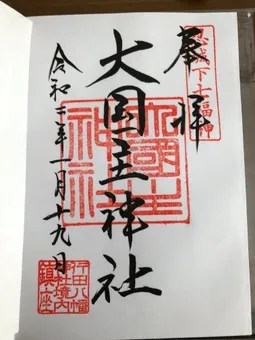 忍城下七福神
奉拝
大国主神社
大國主
神社
令和二年一月十九日
行田八幡
神社境内
鎮座